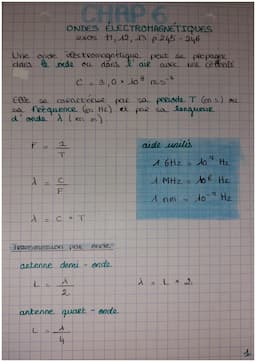 CHAP 6
ONDES ÉLECTROMAGNÉTIQUES
exos 11, 12, 13 p 245 - 246
Une onde électromagnétique peut se propager
dans le vide ou dans l'air avec une célérité
C = 3,0 × 10⁸ m.s⁻¹
Elle se caractérise par sa période T (en s) ou
sa fréquence (en Hz) et par sa longueur
d'onde λ (en m)
F = 1/T
λ = C/F
λ = C × T
aide unités
1 GHz = 10⁻⁹ Hz
1 MHz = 10⁶ Hz
1 nm = 10⁻⁹ Hz
Transmission par onde
antenne demi-onde
L = λ/2
λ = L × 2
antenne quart-onde
L = λ/4